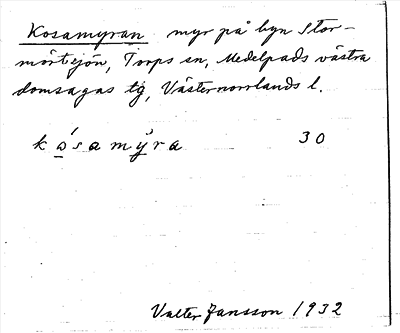 Kosamyran myr på byn Stor-
mörtsjön, Torps sn, Medelpads västra
domsagas tg, Västernorrlands l.
kósamy̌ra 30
Valter Jansson 1932